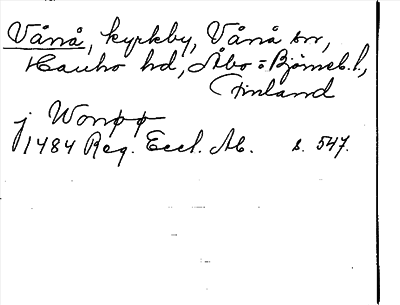 Vånå, kyrkby, Vånå sn,
Hauho hd, Åbo = Björneb. l,
Finland
j Wonøø
1484 Reg. Eccl. Ab. s. 547.